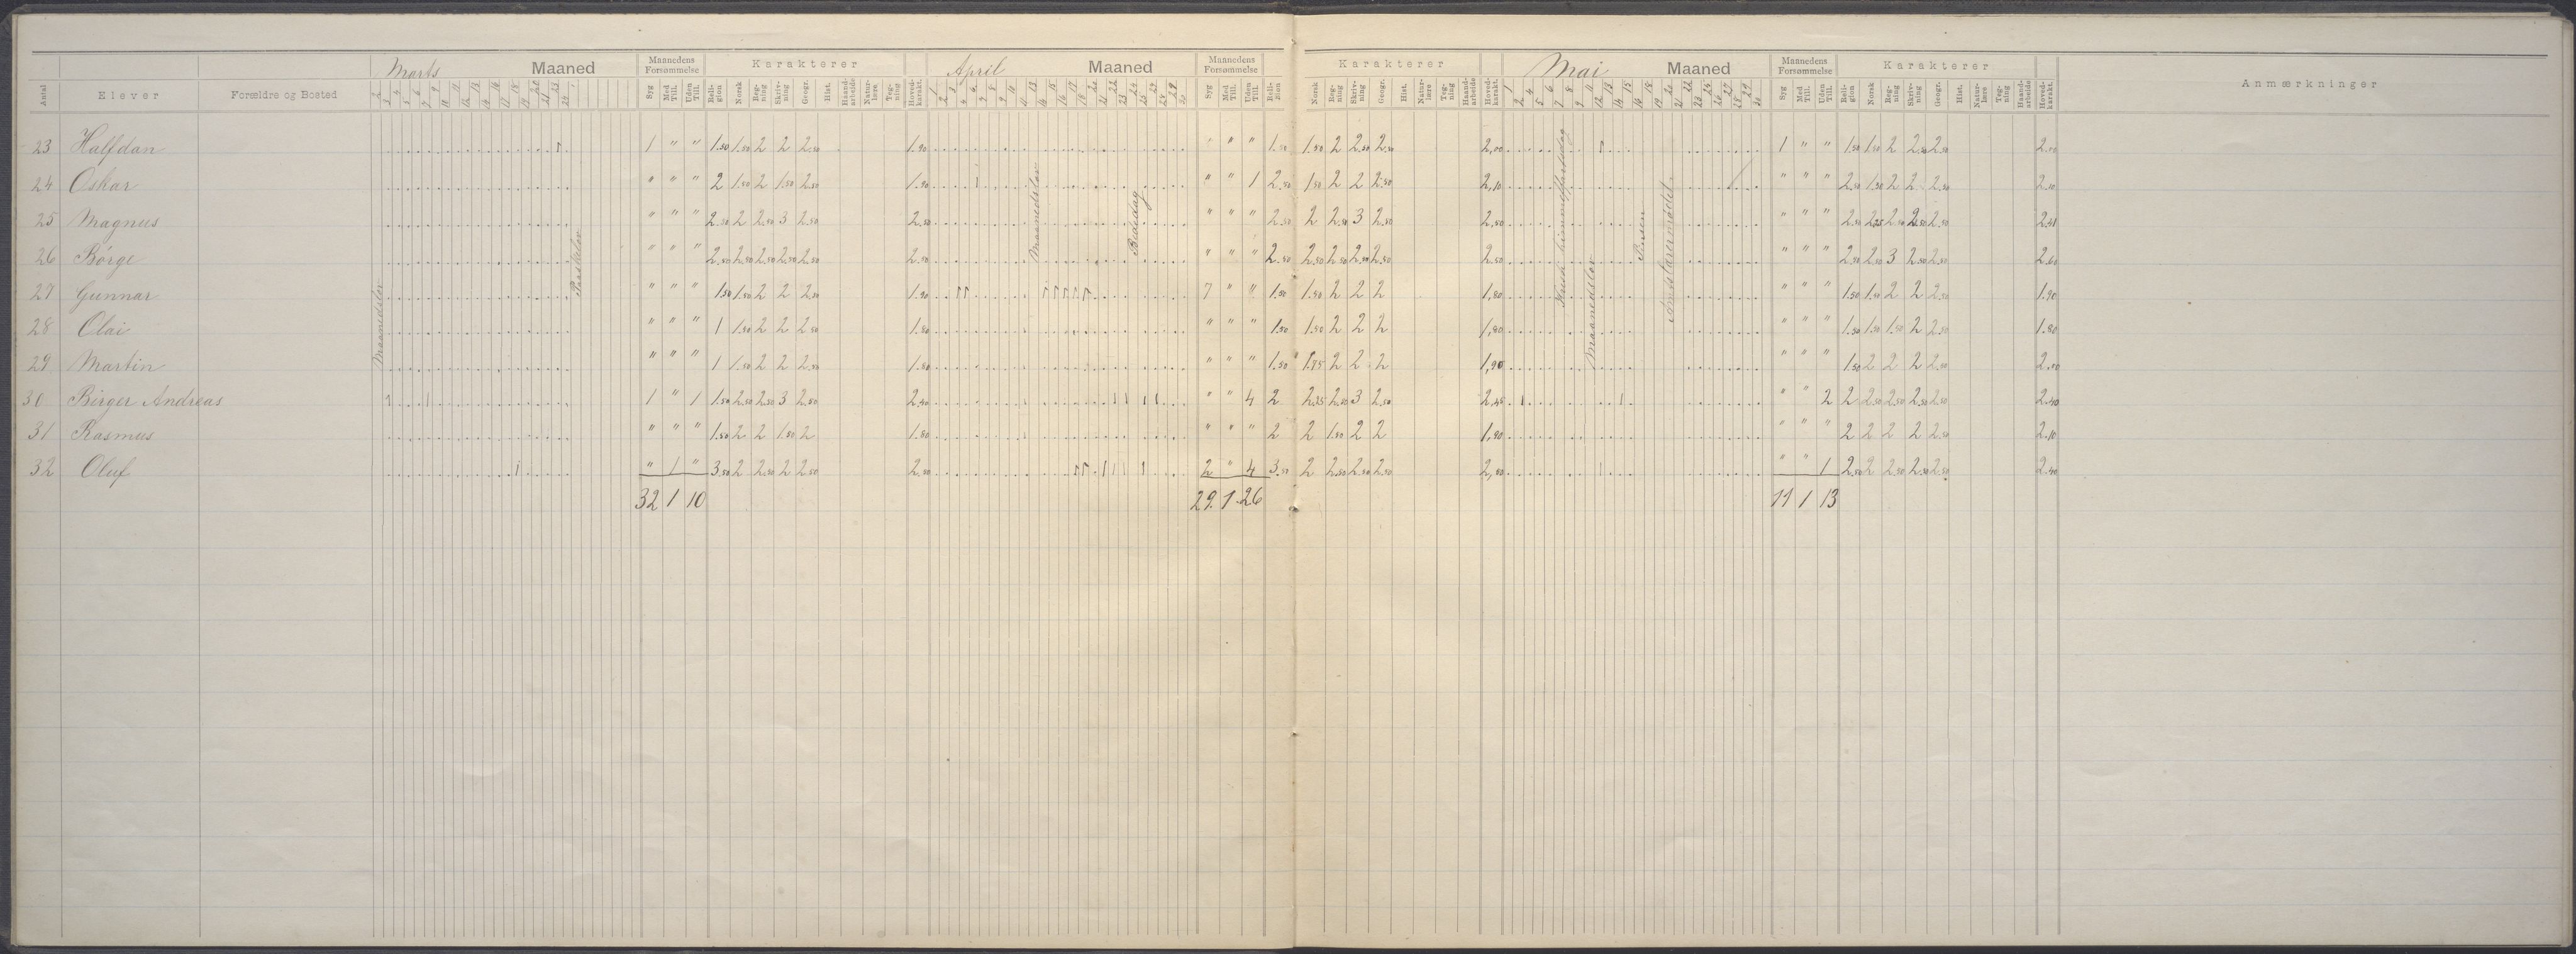 Marts Maaned Maanedens Forsømmelse Karakterer April Maaned Maanedens Forsømmelse Karakterer Mai Maaned Maanedens Forsømmelse Karakterer Anmærkninger
Antal Elever Forældre og Bosted Syg Med Till. Uden Till. Religion Norsk Regning Skrivning Geogr. Hist. Haandarbeide Naturlære Tegning Hovedkarakt. Syg Med Till. Uden Till. Religion Norsk Regning Skrivning Geogr. Hist. Naturlære Tegning Haandarbeide Hovedkarakt. Syg Med Till. Uden Till. Religion Norsk Regning Skrivning Geogr. Hist. Naturlære Tegning Haandarbeide Hovedkarakt.
Maanedslov
Paaskelov
Maanedslov
Bededag
Kristi himmelfartsdag
Maanedslov
Pinsen
Amtslærermødet
23 Halfdan 1 " " 1.50 1.50 2 2 2.50 1.90 " " " 1.50 1.50 2 2.50 2.50 2,00 1 " " 1.50 1.50 2 2.50 2.50 2.00
24 Oskar " " " 2 1.50 2 1.50 2.50 1.90 " " 1 2.50 1.50 2 2 2.50 2,10 " " " 2.50 1.50 2 2 2.50 2.10
25 Magnus " " " 2.50 2 2.50 3 2.50 2.50 " " " 2.50 2 2.50 3 2.50 2,50 " " " 2.50 2.25 2.50 2.50 2.50 2.41
26 Børge " " " 2.50 2.50 2.50 2.50 2.50 2.50 " " " 2.50 2.50 2.50 2.50 2.50 2,50 " " " 2.50 2.50 3 2.50 2.50 2.60
27 Gunnar " " " 1.50 1.50 2 2 2.50 1.90 7 " " 1.50 1.50 2 2 2 1,80 " " " 1.50 1.50 2 2 2.50 1.90
28 Olai " " " 1 1.50 2 2 2.50 1.80 " " " 1.50 1.50 2 2 2 1,80 " " " 1.50 1.50 1.50 2 2.50 1.80
29 Martin " " " 1 1.50 2 2 2.50 1.80 " " " 1.50 1.75 2 2 2 1,90 " " " 1.50 2 2 2 2.50 2.00
30 Birger Andreas 1 " 1 1.50 2.50 2.50 3 2.50 2.40 " " 4 2 2.25 2.50 3 2.50 2,45 " " 2 2 2.50 2.50 2.50 2.50 2.40
31 Rasmus " " " 1.50 2 2 1.50 2 1.80 " " " 2 2 1.50 2 2 1,90 " " " 2 2 2 2 2.50 2.10
32 Oluf " 1 " 3.50 2 2.50 2 2.50 2.50 2 " 4 3.50 2 2.50 2.50 2.50 2,50 " " 1 2.50 2 2.50 2.50 2.50 2.40
32 1 10 29. 1 26 11 1 13